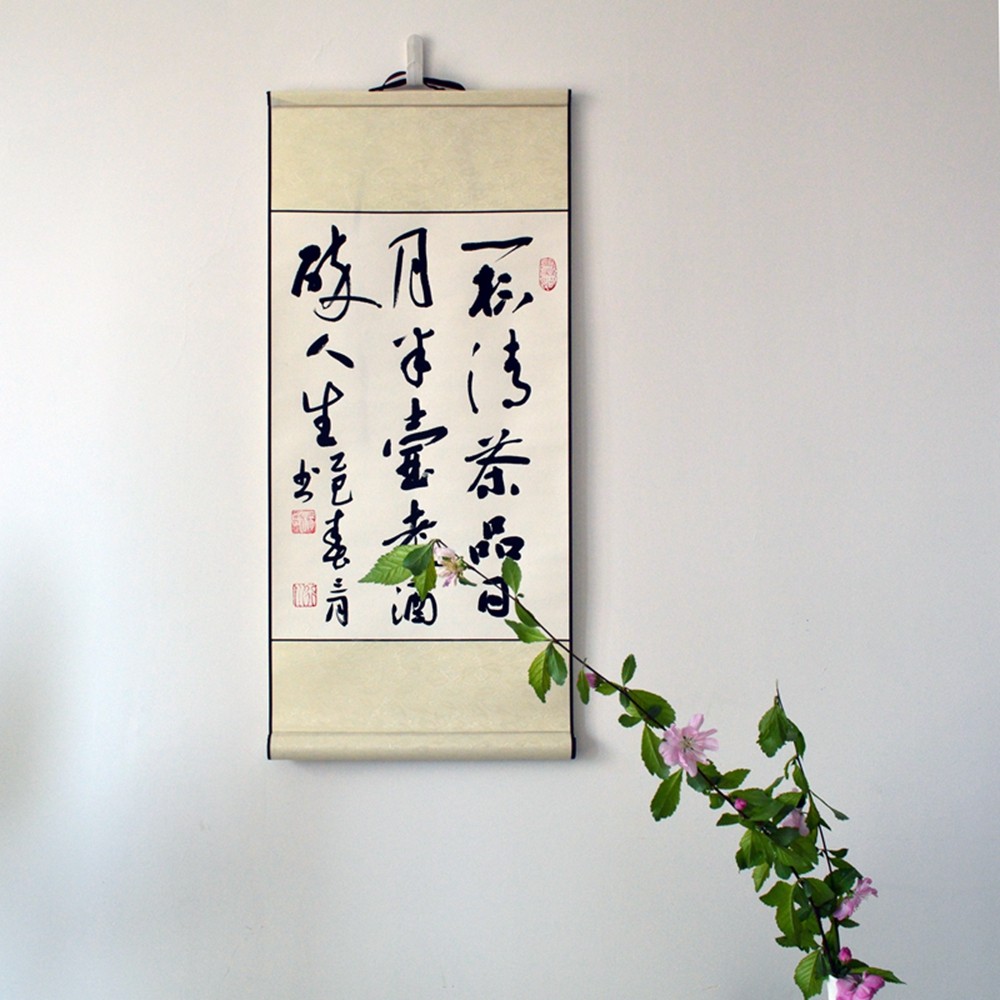 一杯清茶品日
月半壺老酒
醉人生
乙巳春
书